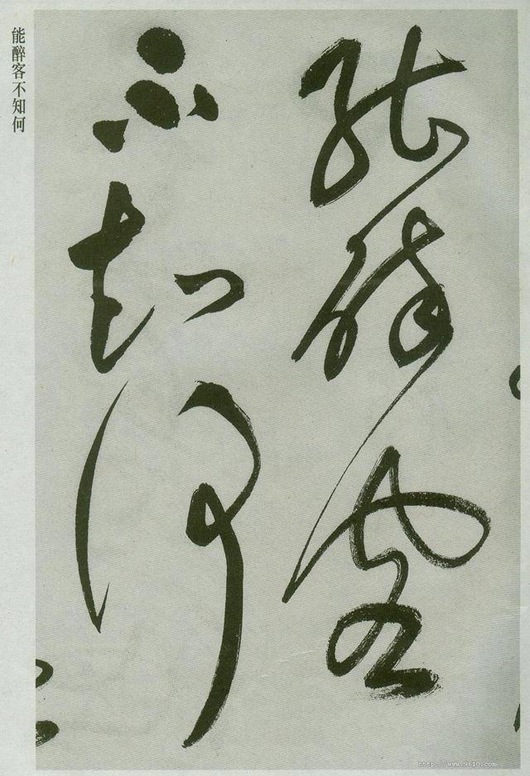 能醉客
不知何
能醉客不知何